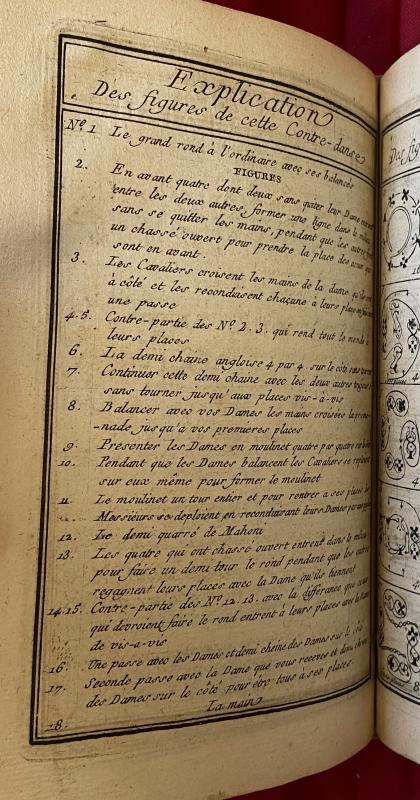 Explication
Des figures de cette Contre-danse
Nº. 1 Le grand rond à l'ordinaire avec ses balancés
FIGURES
2. En avant quatre dont deux sans quiter leur Dame
entre les deux autres, former une ligne dans le milieu
sans se quitter les mains, pendant que les autres font
un chassé ouvert pour prendre la place des ceux qui
sont en avant.
3. Les Cavaliers croisent les mains de la dame qu'ils ont
à côté et les reconduisent chaçune à leurs place en faisant
une passe
4.5. Contre-partie des Nº. 2. 3. qui rend tout le monde à
leurs places
6. La demi chaine angloise 4 par 4. sur le côté sans tourner
7. Continuer cette demi chaine avec les deux autres toujours
sans tourner jusqu'aux places vis-à-vis
8. Balancer avec vos Dames les mains croisées la prome-
-nade jusqu'a vos premieres places
9. Presenter les Dames en moulinet quatre par quatre
10. Pendant que les Dames balancent les Cavaliers se
sur eux même pour former le moulinet
11. Le moulinet un tour entier et pour rentrer a ses places les
Messieurs se deploient en reconduisant leurs Dames
12. Le demi quarré de Mahoni
13. Les quatre qui ont chassé ouvert entrent dans le milieu
pour faire un demi tour le rond pendant que les autres
regagnent leurs places avec la Dame qu'ils tiennent
14.15. Contre-partie des Nº. 12. 13. avec la differance que ceux
qui devroient faire le rond entrent à leurs places avec la Dame
de vis-a-vis
16. Une passe avec les Dames et demi cheine des Dames sur le côté
17. Seconde passe avec la Dame que vous recevés et demi cheine
des Dames sur le côté pour être tous à ses places.
18. La main